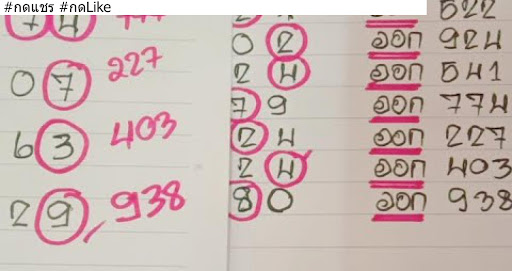 #กดแชร #กดLike
74
07 227
63 403
29 938
522
02 ออก 924
24 ออก 541
79 ออก 774
24 ออก 227
24 ออก 403
80 ออก 938